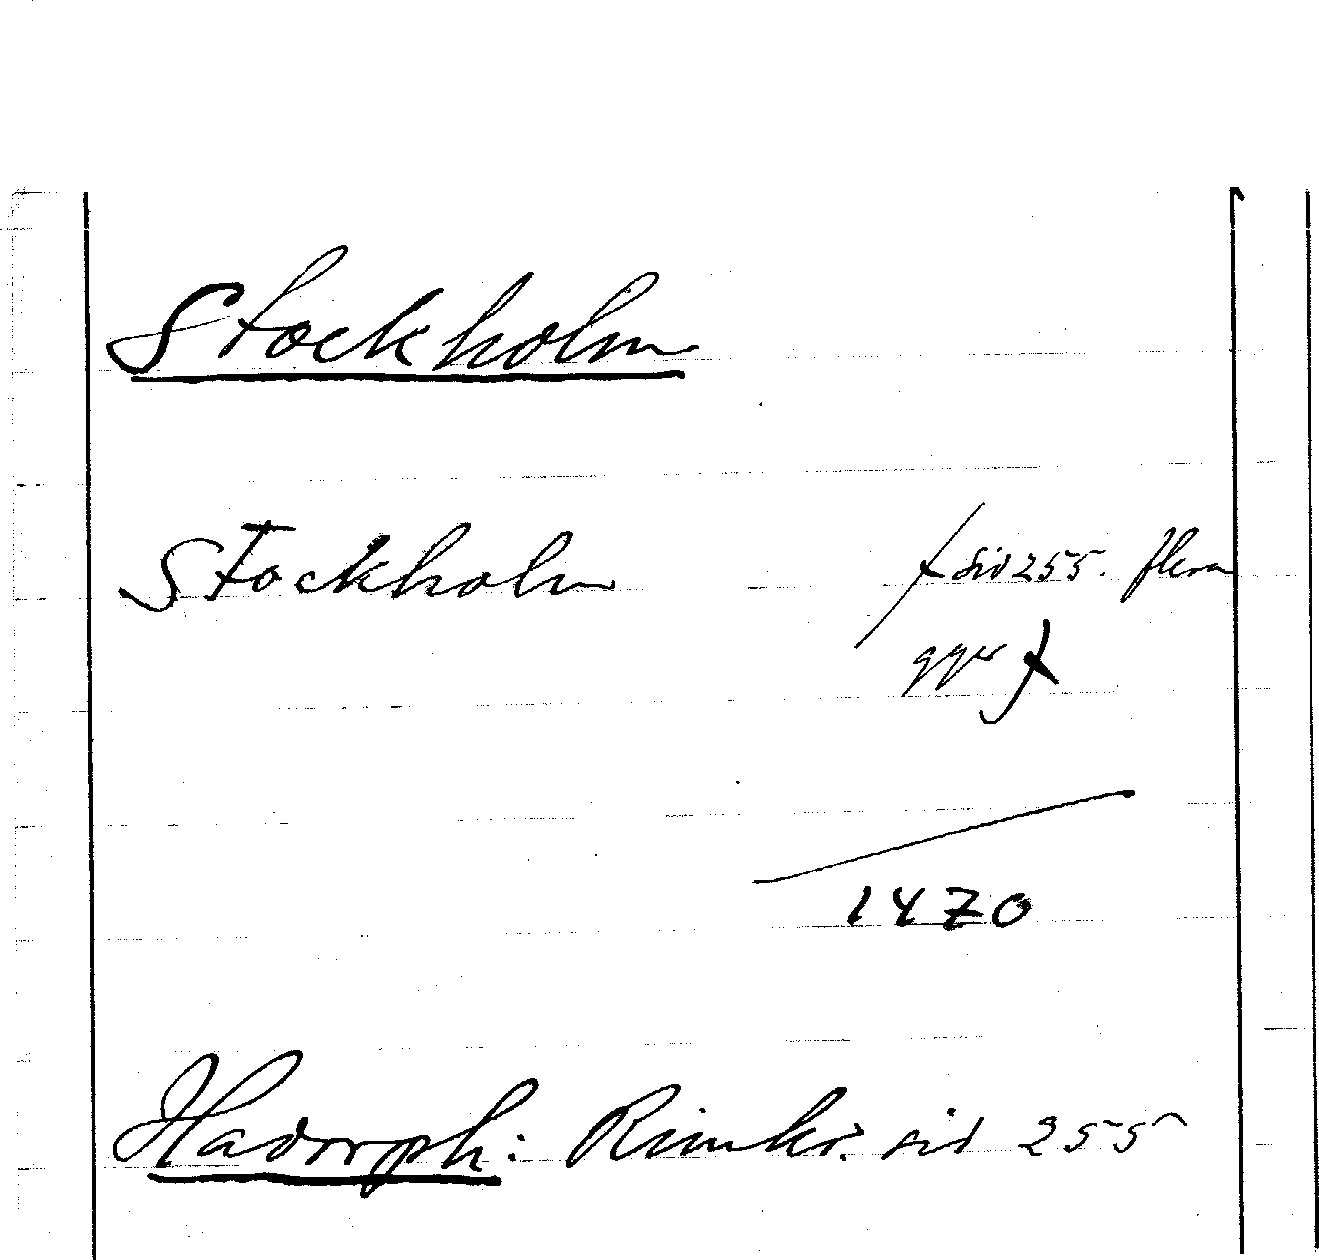 Stockholm
Stockholm
sid 255. flera
ggr
1470
Hadorph: Rimkr. sid 255